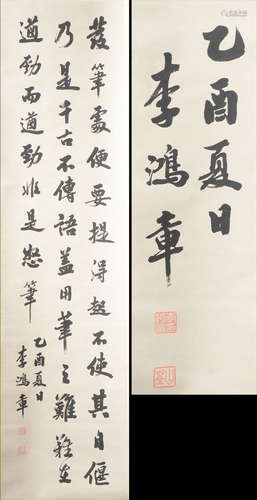 發筆處便要提得起不使其自偃
乃是千古不傳語蓋用筆之難難在
遒勁而遒勁非是怒筆
乙酉夏日
李鴻章
乙酉夏日
李鴻章